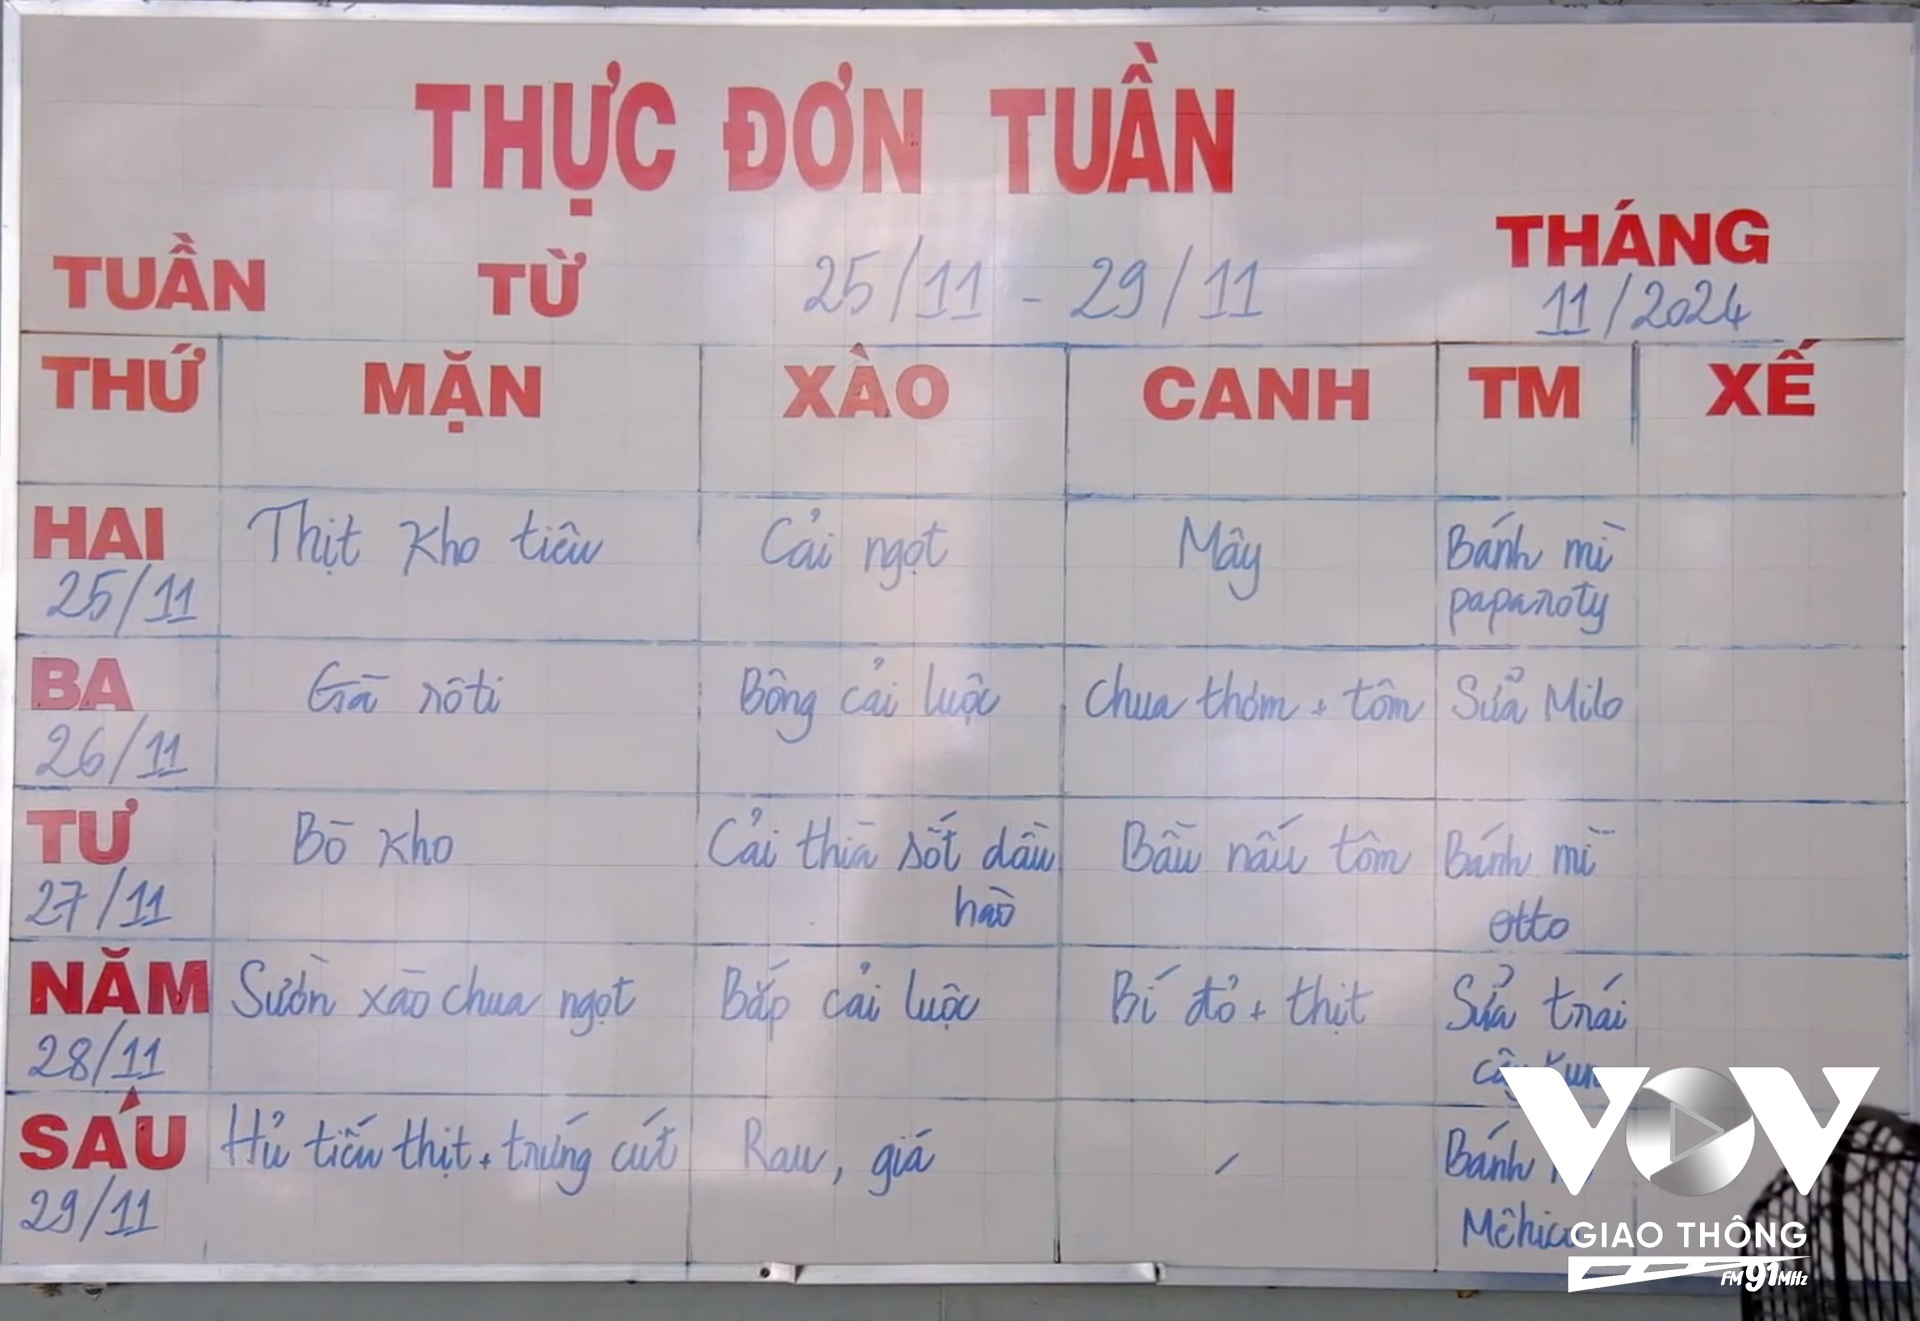 THỰC ĐƠN TUẦN
TUẦN TỪ 25/11 - 29/11
THÁNG
11/2024
THỨ MẶN XÀO CANH TM XẾ
HAI Thịt kho tiêu Cải ngọt Mây Bánh mì
25/11 paparoty
BA Gà rôti Bông cải luộc Chua thơm + tôm Sữa Milo
26/11
TƯ Bò kho Cải thìa sốt dầu Bầu nấu tôm Bánh mì
27/11 hào otto
NĂM Sườn xào chua ngọt Bắp cải luộc Bí đỏ + thịt Sữa trái
28/11 cây
SÁU Hủ tiếu thịt + trứng cút Rau, giá / Bánh
29/11 Mêhico
VOV
GIAO THÔNG
FM 91 MHz